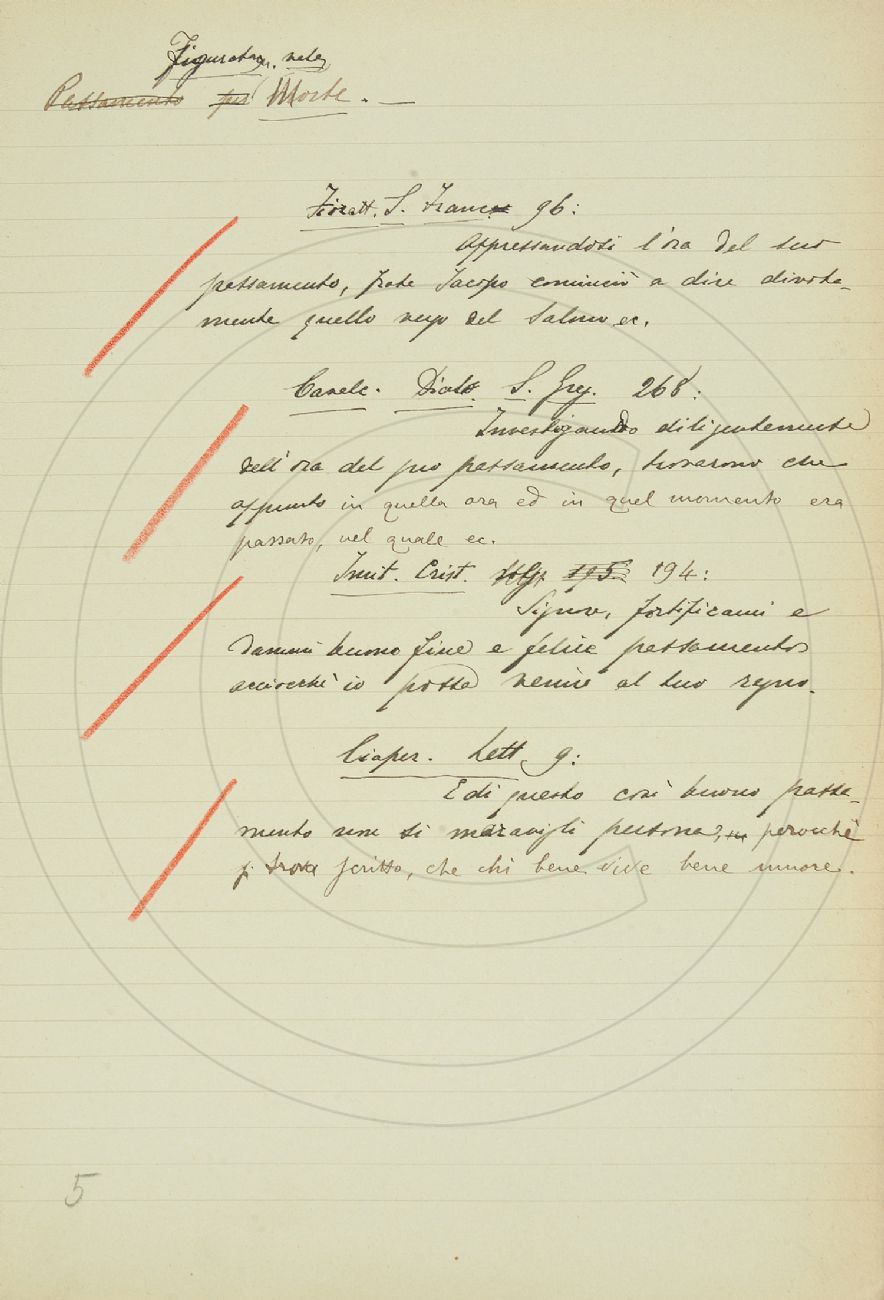 Figuratam. vale
Passamento per Morte. —
Fiorett. S. Franc. 96:
Appressandosi l'ora del suo
passamento, frate Jacopo cominciò a dire divota-
mente quello verso del Salmo ec.
Cavalc. Dialo. S. Greg. 268:
Investigando diligentemente
dell'ora del suo passamento, trovarono che
appunto in quella ora ed in quel momento era
passato, nel quale ec.
Imit. Crist. 195 194:
Signore, fortificami e
dammi buono fine e felice passamento
acciocchè io possa venire al tuo regno.
Lett. 9:
E di questo così buono passa-
mento non si maravigli persona, perocchè
si trova scritto, che chi bene vive bene muore.
5